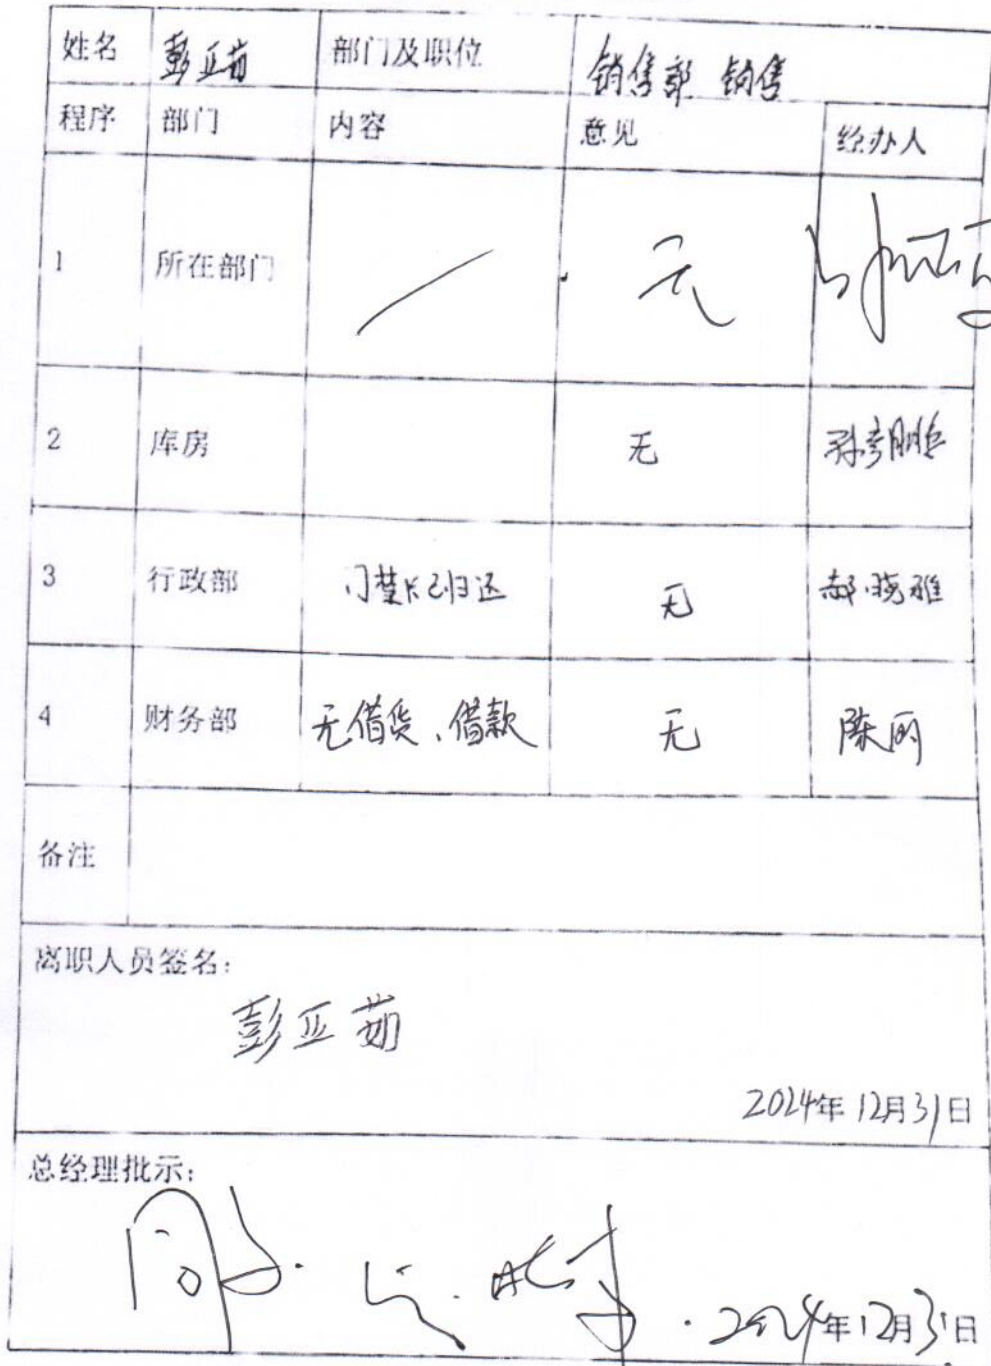 姓名 彭亚茹 部门及职位 销售部 销售
程序 部门 内容 意见 经办人
1 所在部门 / 无
2 库房 无
3 行政部 门禁卡已归还 无 郝晓雅
4 财务部 无借货、借款 无 陈丽
备注
离职人员签名：
彭亚茹
2024年12月31日
总经理批示：
同意.
2024年12月31日